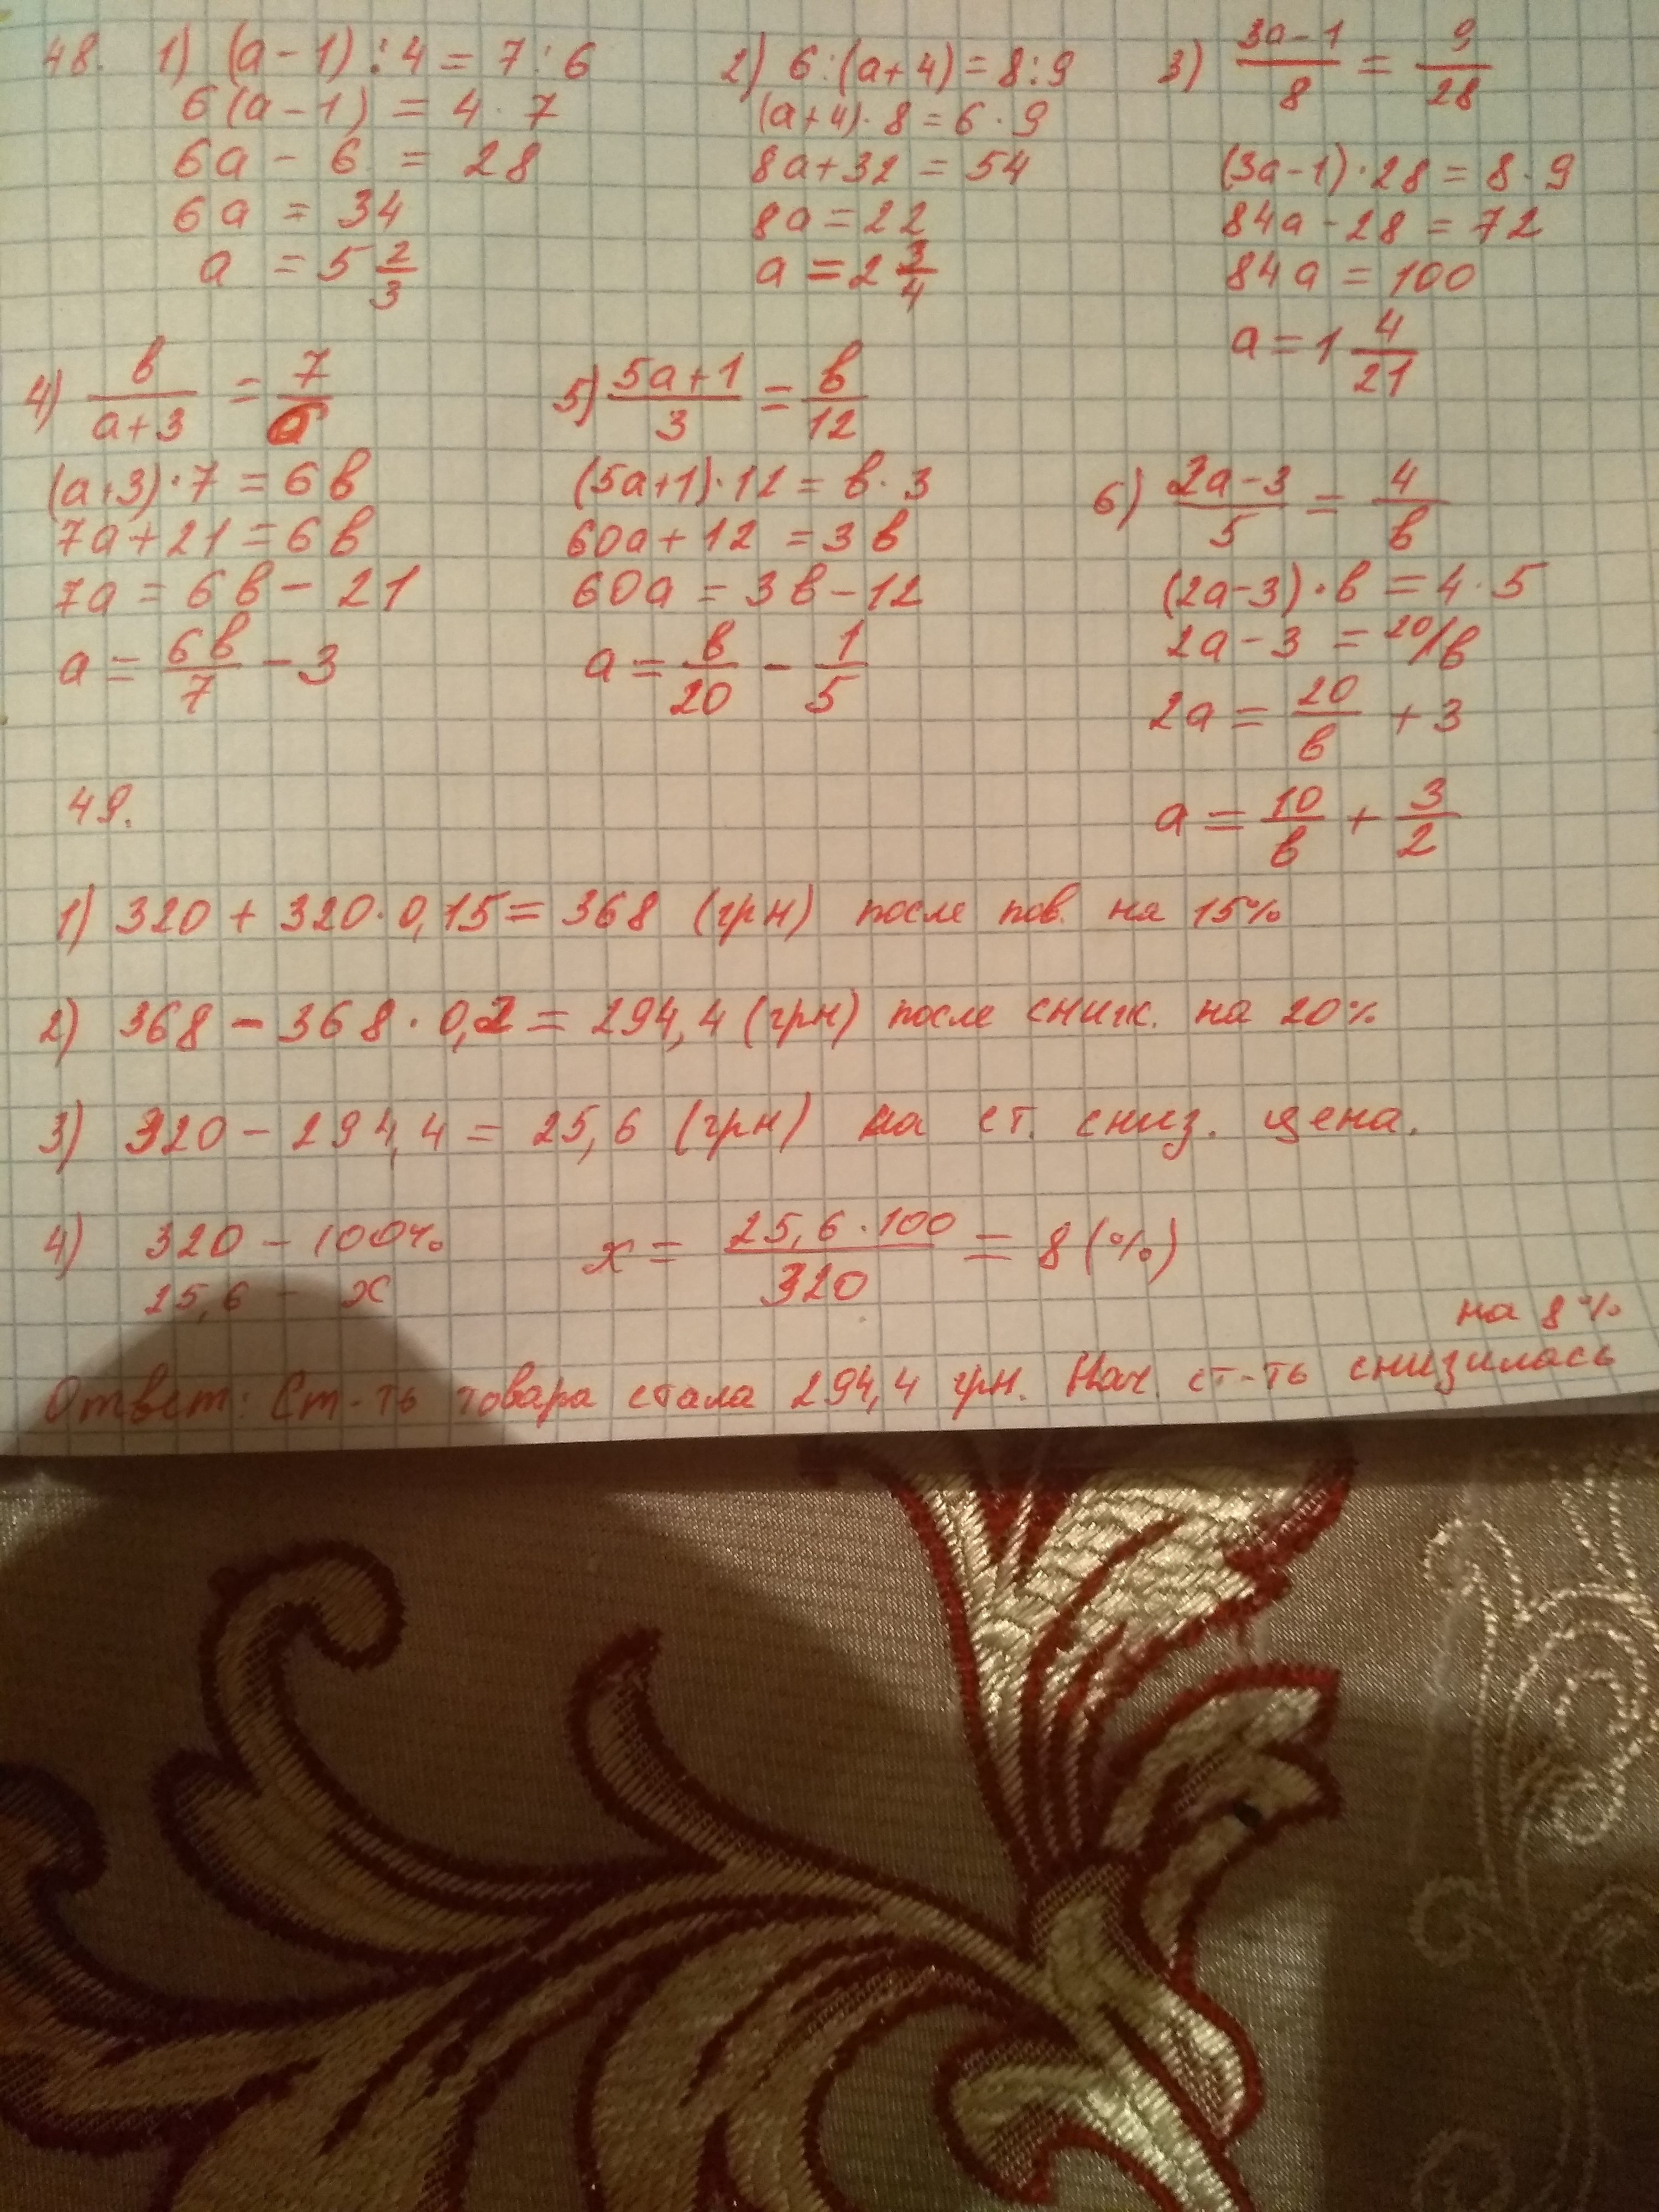 48. 1) (a - 1) : 4 = 7 : 6
6(a - 1) = 4 · 7
6a - 6 = 28
6a = 34
a = 5 2/3
2) 6 : (a + 4) = 8 : 9
(a + 4) · 8 = 6 · 9
8a + 32 = 54
8a = 22
a = 2 3/4
3) (3a - 1)/8 = 9/28
(3a - 1) · 28 = 8 · 9
84a - 28 = 72
84a = 100
a = 1 4/21
4) в/(a + 3) = 7/
(a + 3) · 7 = 6в
7a + 21 = 6в
7a = 6в - 21
a = 6в/7 - 3
5) (5a + 1)/3 = в/12
(5a + 1) · 12 = в · 3
60a + 12 = 3в
60a = 3в - 12
a = в/20 - 1/5
6) (2a - 3)/5 = 4/в
(2a - 3) · в = 4 · 5
2a - 3 = 20/в
2a = 20/в + 3
a = 10/в + 3/2
49.
1) 320 + 320 · 0,15 = 368 (грн) после пов. на 15%
2) 368 - 368 · 0,2 = 294,4 (грн) после сниж. на 20%
3) 320 - 294,4 = 25,6 (грн) на ст. сниз. цена.
4) 320 - 100% x = 25,6 · 100/320 = 8 (%)
25,6 - x
на 8%
Ответ: Ст-ть товара стала 294,4 грн. Нач. ст-ть снизилась